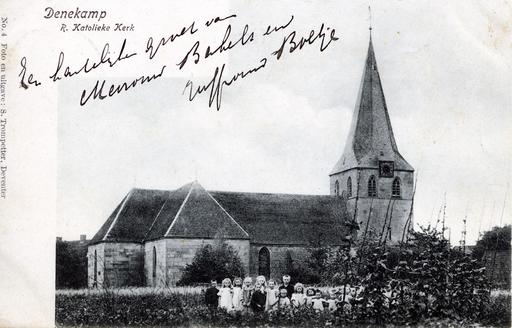 Denekamp
R. Katolieke Kerk
Een hartelijke groet van
Mevrouw Bakels en
Juffrouw Boltje
No. 4 Foto en uitgave: S. Trompetter, Deventer